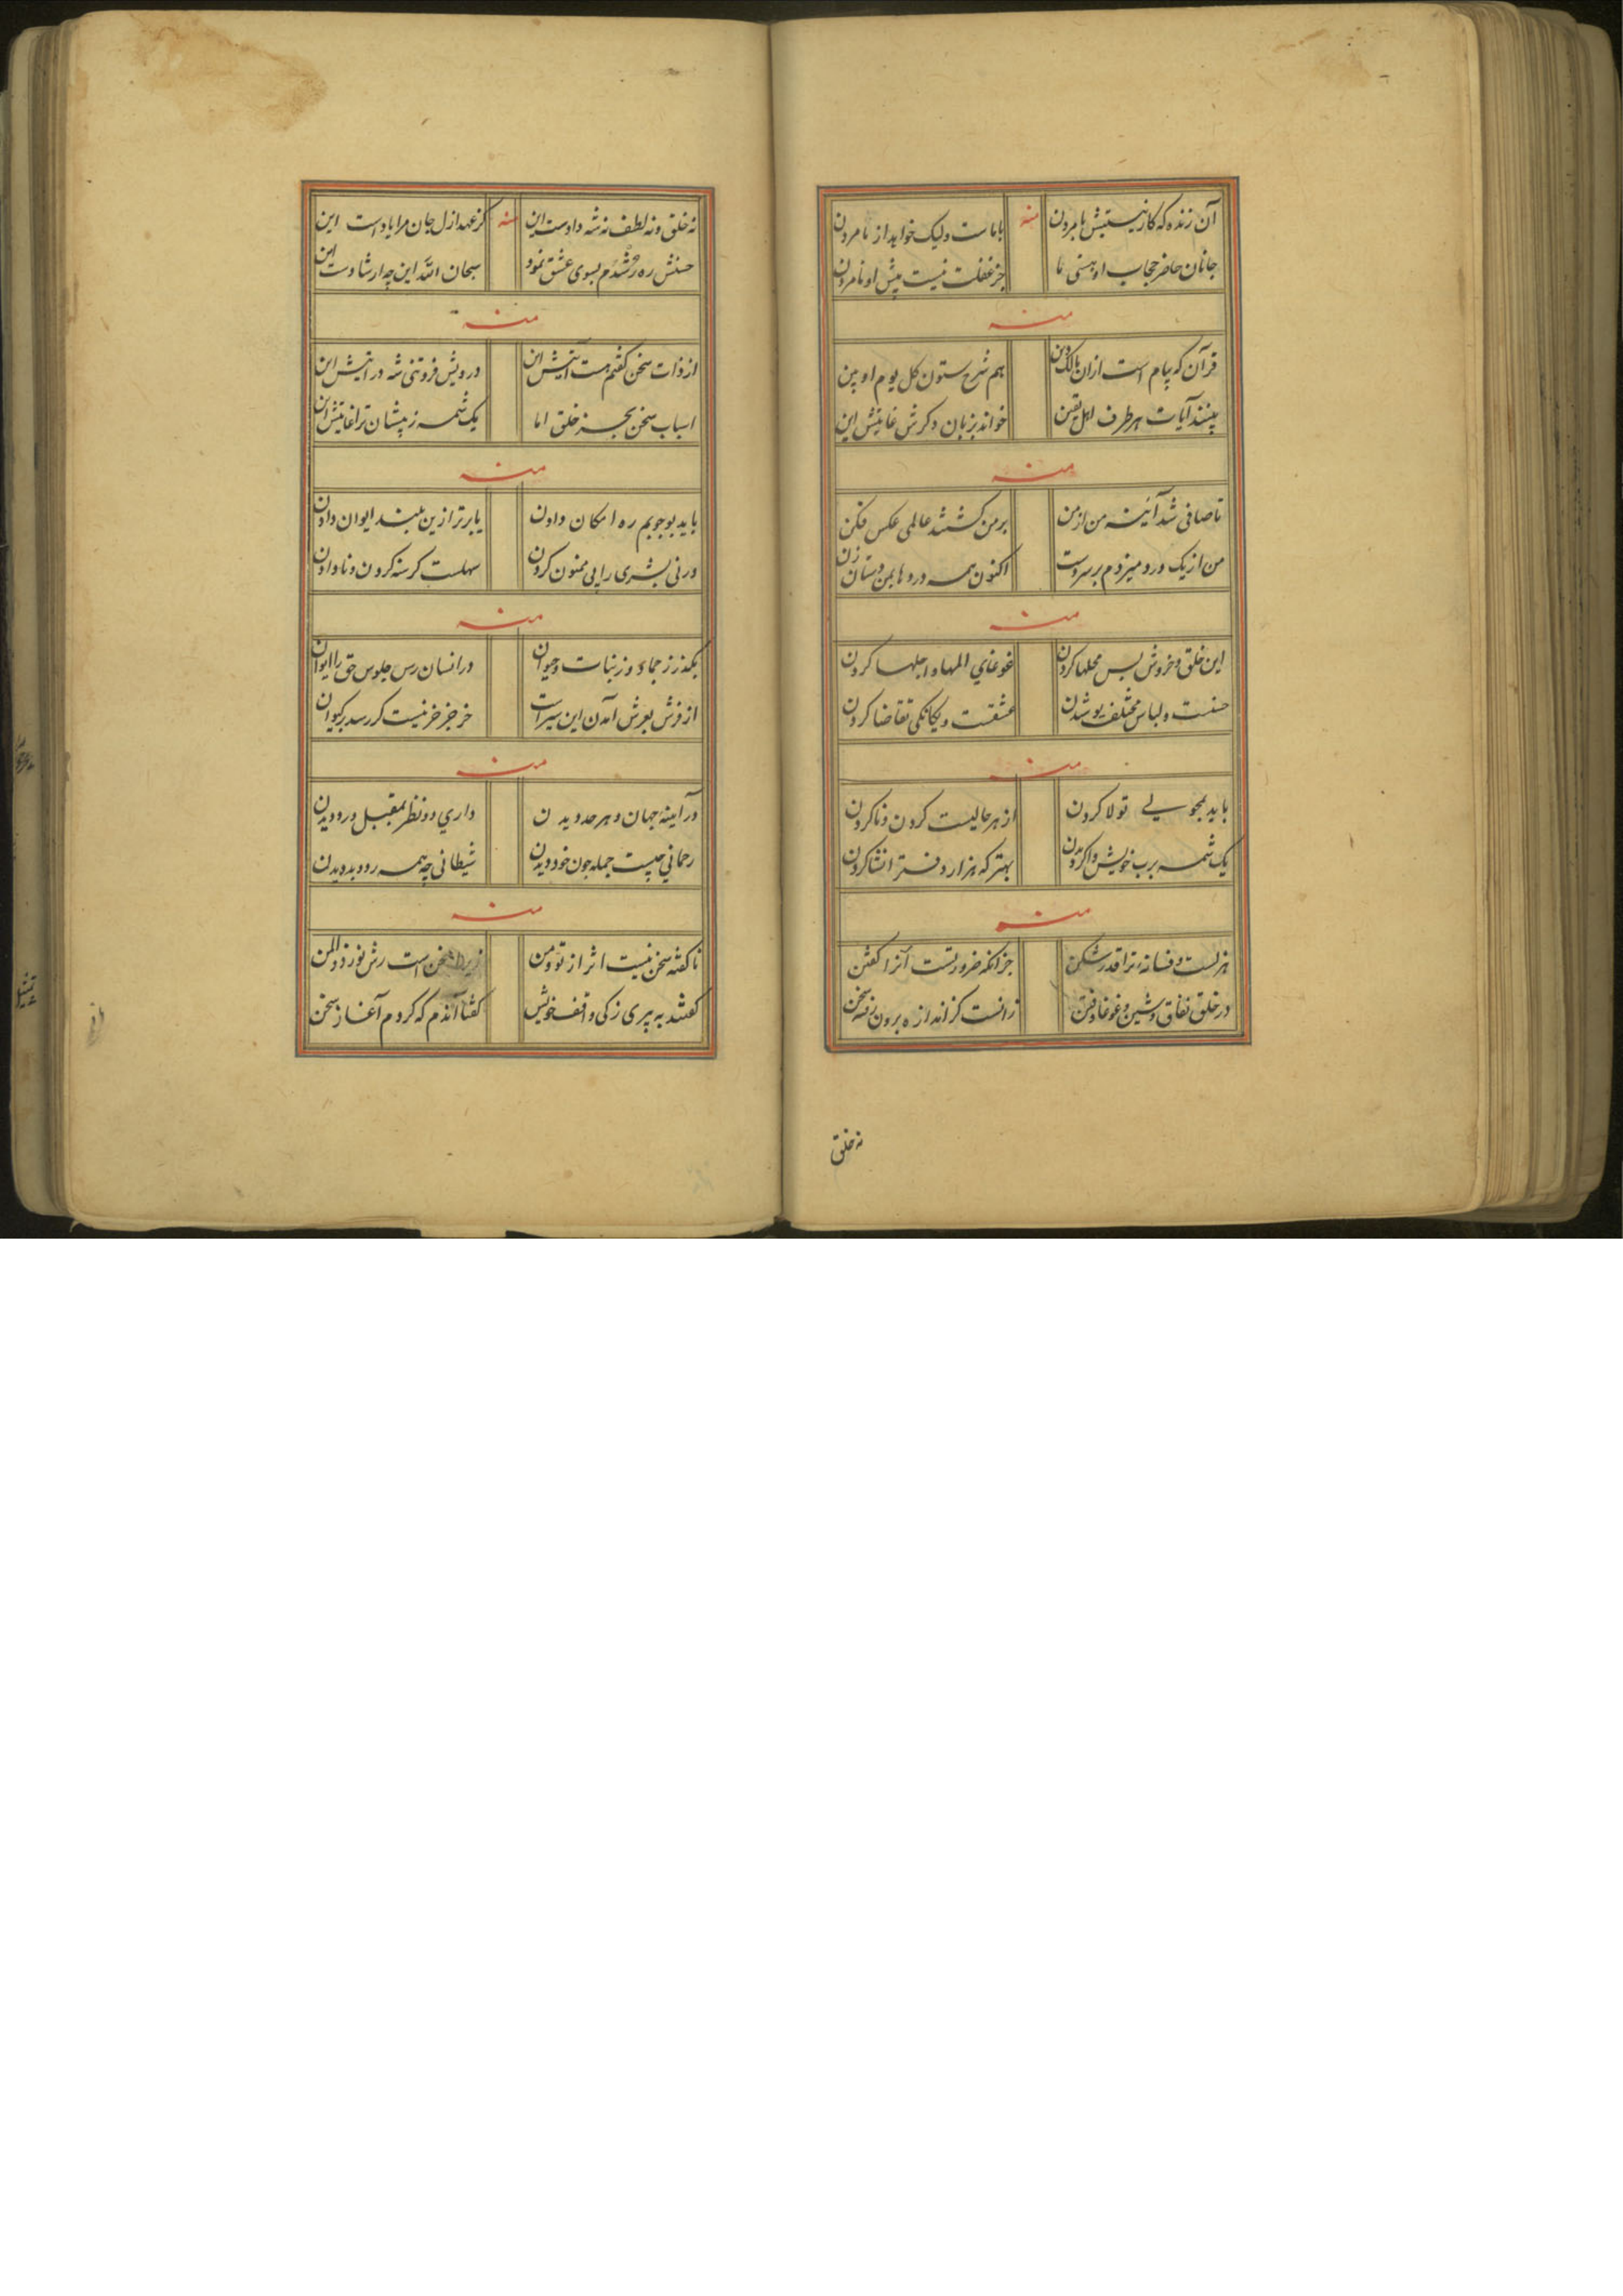 آن زنده که کار نیستیش با مردن منه با ماست ولیک خواهد از نامردن
جانان حاضر حجاب او هستی ما جز غفلت نیست پیش او نامردن
منه
قرآن که پیام است ازان مالک دین هم شرح ستون کل یوم او بین
بینند آیات هر طرف اهل یقین خواند بزبان دکرش غایتش این
منه
تا صافی شد آئینه من از من بر من کشتند عالمی عکس فکن
من از یک در و میزدم بر سر دست اکنون همه درو هایمن دستان زن
منه
این خلق و خروش بس محلها کردن غوغای المها و اجلها کردن
حسنت و لباس مختلف پوشیدن عشقت و یکانکی تقاضا کردن
منه
باید بمحو لی تولا کردن از هر حالیست کردن و ناکردن
یک شمه برب خویش وا کردیدن بهتر که هزار دفتر انشا کردن
منه
هزلست و فسانه ترا قدر شکن جز آنکه ضرورتست آنرا کفتن
در خلق نفاق و شین و غوغا و فتن زانست کز اندازه برون رفته سخن
نه خلق
نه خلق و نه لطف نه شه دادست این منه کز عهد ازل جان مرا یادست این
حسنش ره مرشدم بسوی عشق نمود سبحان الله این چه ارشادست این
منه
از ذات سخن کفتم هست آیتش این درویش فروتنی شه در آیتش این
اسباب سخن بجز خلق اما یک شمه ز پیشان ترا غایتش این
منه
باید بوجوبم ره امکان دادن یا برتر ازین بلند ایوان دادن
ورنی بشری را بی ممنون کردن سهلست کرسنه کردن و نا دادن
منه
بکذر ز جماد و ز نبات و حیوان در انسان رس جلوس حق را ایوان
از فرش بعرش آمدن این سیر است خر جز خر نیست کر رسد بر کیوان
منه
در آینه جهان و هر حد دیدن داری دو نظر بمقبل و رد دیدن
رحمانی چیست جمله چون خود دیدن شیطانی چه همه رد و بد دیدن
منه
ناکفته سخن نیست اثر از تو و من زیرا سخن است رش نور ذو المن
کفتند به پیری زکی واقف خویش کفتا آندم که کردم آغاز سخن